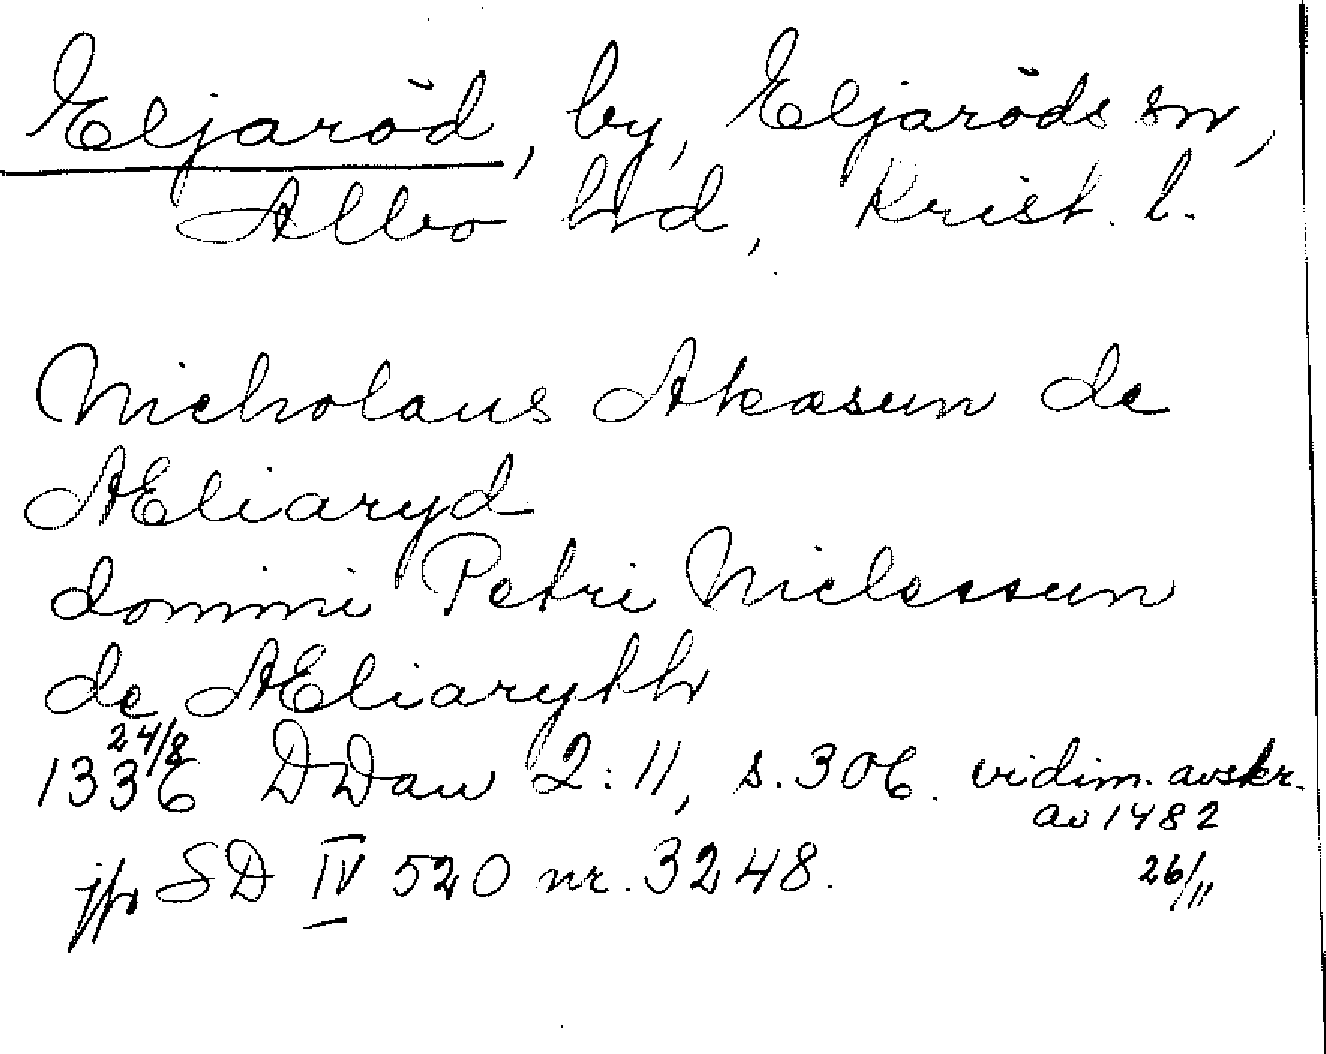 Eljaröd, by, Eljaröds sn,
Albo hd, Krist. l.
Nicholaus Akæsun de
Æliaryd
domini Petri Niclessun
de Æliaryth
1336 24/8 DDan 2:11, s. 306. vidim. avskr.
av 1482
26/11
jfr SD IV 520 nr. 3248.